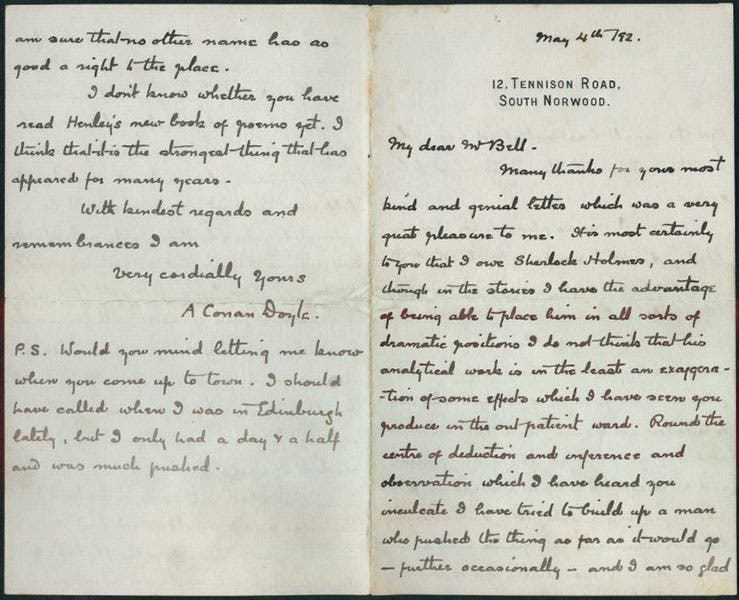 May 4th/92.
12, TENNISON ROAD,
SOUTH NORWOOD.
My dear Mr Bell -
Many thanks for your most
kind and genial letter which was a very
great pleasure to me. It is most certainly
to you that I owe Sherlock Holmes, and
though in the stories I have the advantage
of being able to place him in all sorts of
dramatic positions I do not think that his
analytical work is in the least an exaggera-
-tion of some effects which I have seen you
produce in the out-patient ward. Round the
centre of deduction and inference and
observation which I have heard you
inculcate I have tried to build up a man
who pushed the thing as far as it would go
- further occasionally - and I am so glad
am sure that no other name has as
good a right to the place.
I don't know whether you have
read Henley's new book of poems yet. I
think that it is the strongest thing that has
appeared for many years -
With kindest regards and
remembrances I am
Very cordially Yours
A Conan Doyle.
P.S. Would you mind letting me know
when you come up to town. I should
have called when I was in Edinburgh
lately, but I only had a day & a half
and was much pushed.